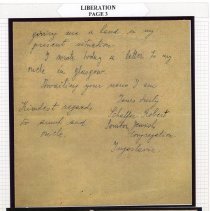 LIBERATION
PAGE 3
giving me a hand in my
present situation.
I wrote today a letter to my
uncle in Glasgow.
Awaiting your news I am
Yours truly
Robert
Kindest regards
to aunt and
uncle.
Jewish
Congregation
Jugoslavia